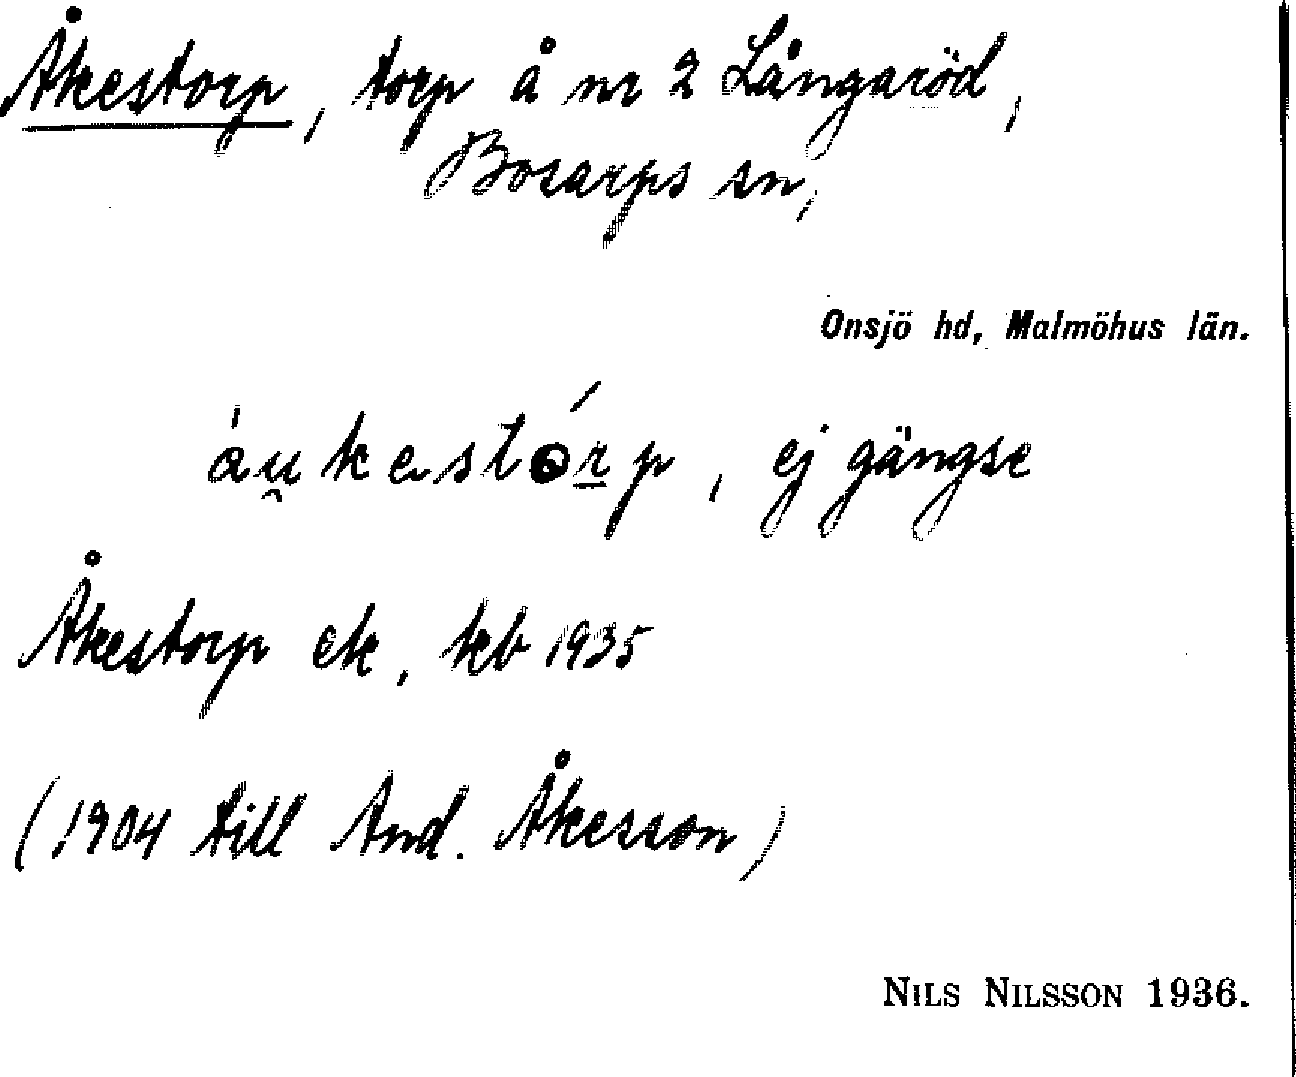 Åkestorp, torp å nr 2 Långaröd,
Bosarps sn,
Onsjö hd, Malmöhus län.
áu̯kestórp, ej gängse
Åkestorp ek, kb 1935
(1904 till And. Åkesson)
NILS NILSSON 1936.